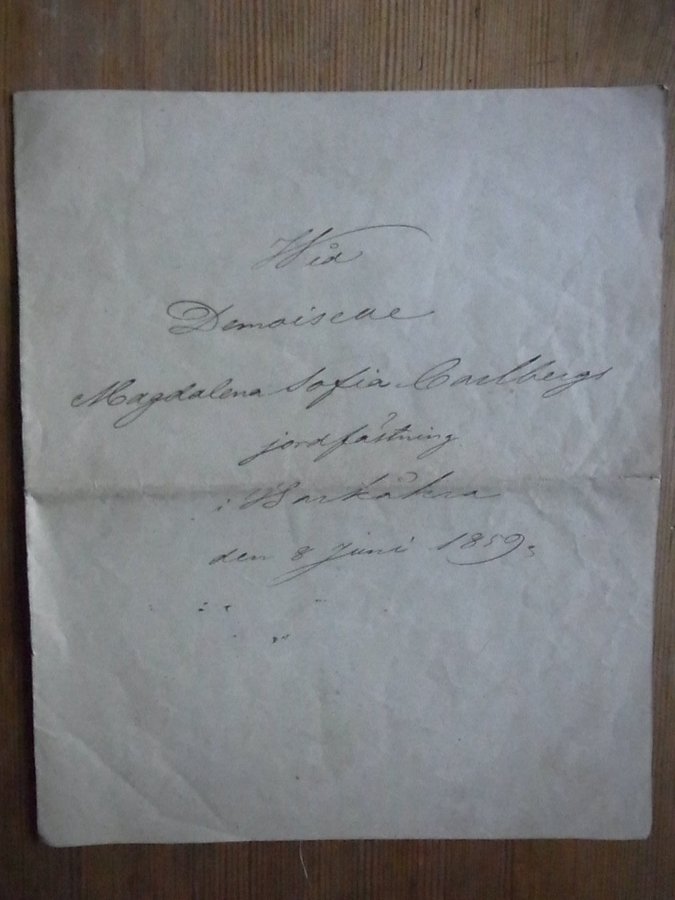 Wid
Demoiselle
Magdalena Sofia Carlbergs
jordfästning
i Barkåkra
den 8 Juni 1859.